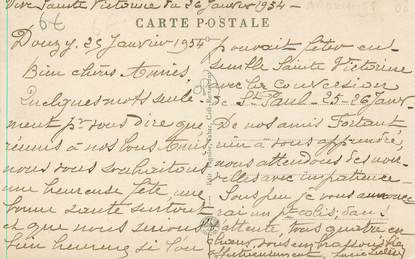 Vive Sainte Victoire du 26 Janvier 1954 -
CARTE POSTALE
Douzy, 25 Janvier 1954
Bien chers Amis,
Quelques mots seule
ment pr vous dire que
réunis à nos bons Amis
nous vous souhaitons
une heureuse fête une
bonne santé surtout
et que nous serions
bien heureux si l'on
pouvait fêter en
semble Sainte Victorine
avec la conversion
de St Paul - 25-26 Janv-
De nos amis
rien à vous apprendre,
nous attendons des nou
velles avec impatience.
Sous peu je vous annonce
rai un colis, dans
l'attente, tous quatre en
chœur, vous embrassons bien
affectueusement,